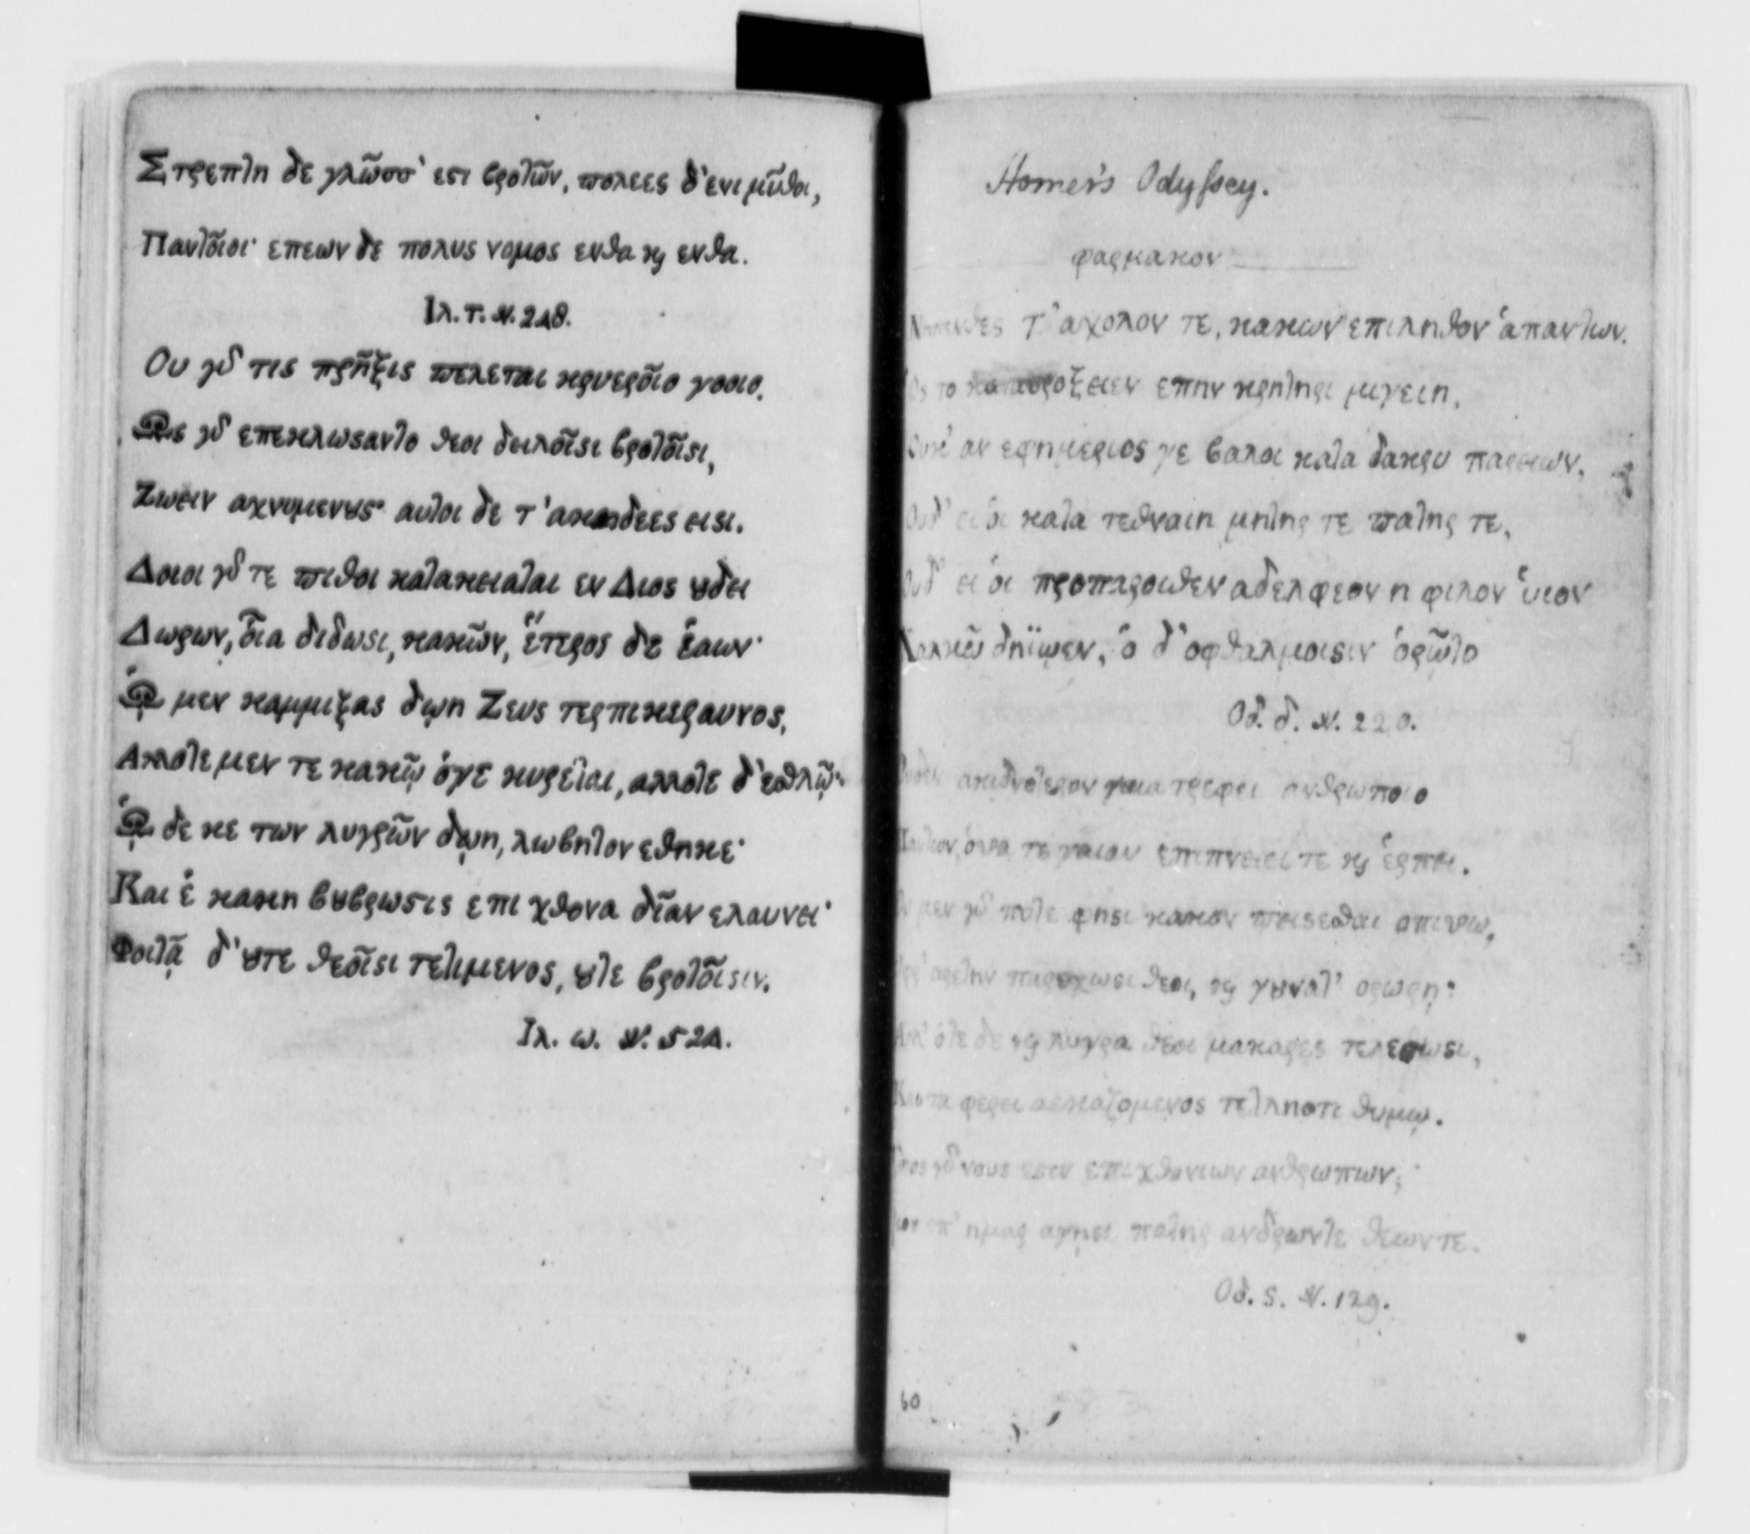 Στρεπτη δε γλῶσσ' εστι βροτῶν, πολεες δ' ενι μῦθοι,
Παντοῖοι· επεων δε πολυς νομος ενθα ϗ ενθα.
Ιλ. τ. V. 248.
Ου γδ τις πρῆξις πελεται κρυεροῖο γοοιο.
Ως γδ επεκλωσαντο θεοι δειλοῖσι βροτοῖσι,
Ζωειν αχνυμενȣς· αυτοι δε τ' ακηδεες εισι.
Δοιοι γδ τε πιθοι κατακειαται εν Διος ȣδει
Δωρων, οῖα διδωσι, κακῶν, ἕτερος δε ἑαων·
ᾩ μεν καμμιξας δωη Ζευς τερπικεραυνος,
Αλλοτε μεν τε κακῷ ὁγε κυρεται, αλλοτε δ' εσθλῷ·
ᾩ δε κε των λυγρῶν δωη, λωβητον εθηκε·
Και ἑ κακη βȣβρωστις επι χθονα δῖαν ελαυνει·
Φοιτᾷ δ' ȣτε θεοῖσι τετιμενος, ȣτε βροτοῖσιν.
Ιλ. ω. V. 524.
Homer's Odyssey.
φαρμακον
τ' αχολον τε, κακων επιληθον ἁπαντων.
το καταβροξειεν επην κρητηρι μιγειη,
αν εφημεριος γε βαλοι κατα δακρυ παρειων,
ει ὁι κατα τεθναιη μητηρ τε πατηρ τε,
ει ὁι προπαροιθεν αδελφεον η φιλον ὑιον
Χαλκῷ δηϊῳεν, ὁ δ' οφθαλμοισιν ὁρῷτο
Οδ. δ. V. 220.
ακιδνοτερον γαια τρεφει ανθρωποιο
ὁσσα τε γαιαν επιπνειει τε ϗ ἑρπει.
μεν γδ ποτε φησι κακον πεισεσθαι οπισσω,
αρετην παρεχωσι θεοι, ϗ γȣνατ' ορωρη·
ὁτε δε ϗ λυγρα θεοι μακαρες τελεσωσι,
τα φερει αεκαζομενος τετληοτι θυμῳ.
γδ νοος εστιν επιχθονιων ανθρωπων,
επ' ημαρ αγησι πατηρ ανδρωντε θεωντε.
Οδ. σ. V. 129.
60